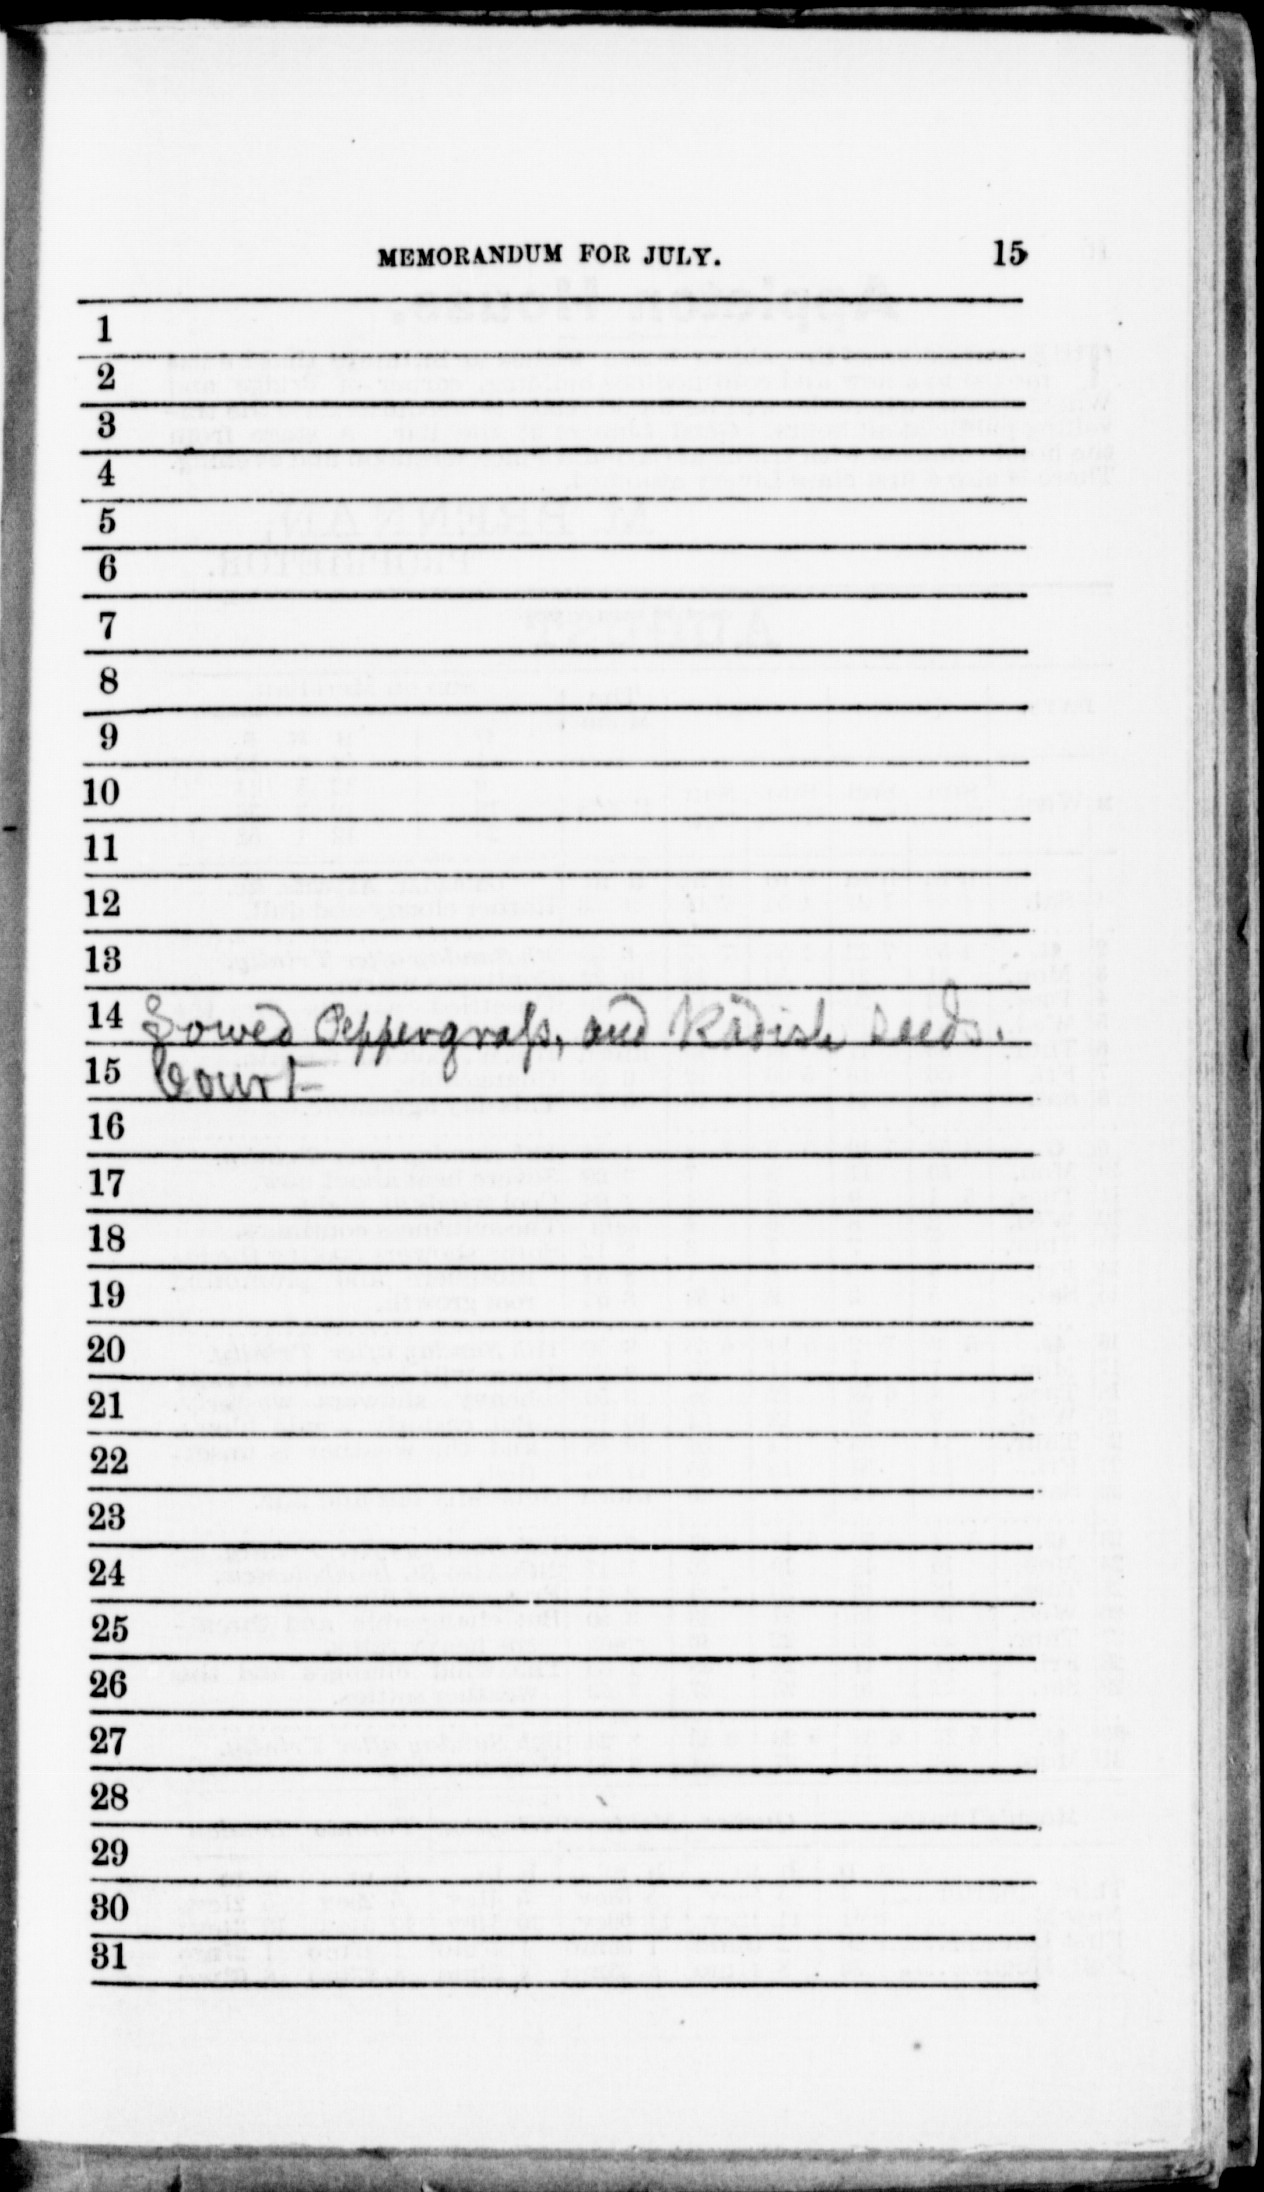 MEMORANDUM FOR JULY. 15
1
2
3
4
5
6
7
8
9
10
11
12
13
14 Sowed Peppergraſs, and Radish Seeds.
15 Court
16
17
18
19
20
21
22
23
24
25
26
27
28
29
30
31